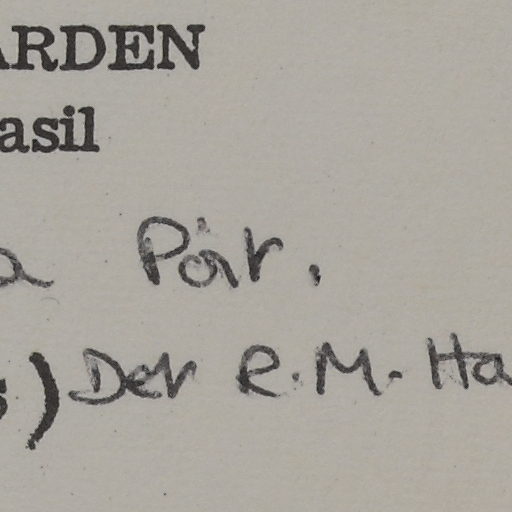 ARDEN
asil
a Poir.
s) Det R.M. Ha